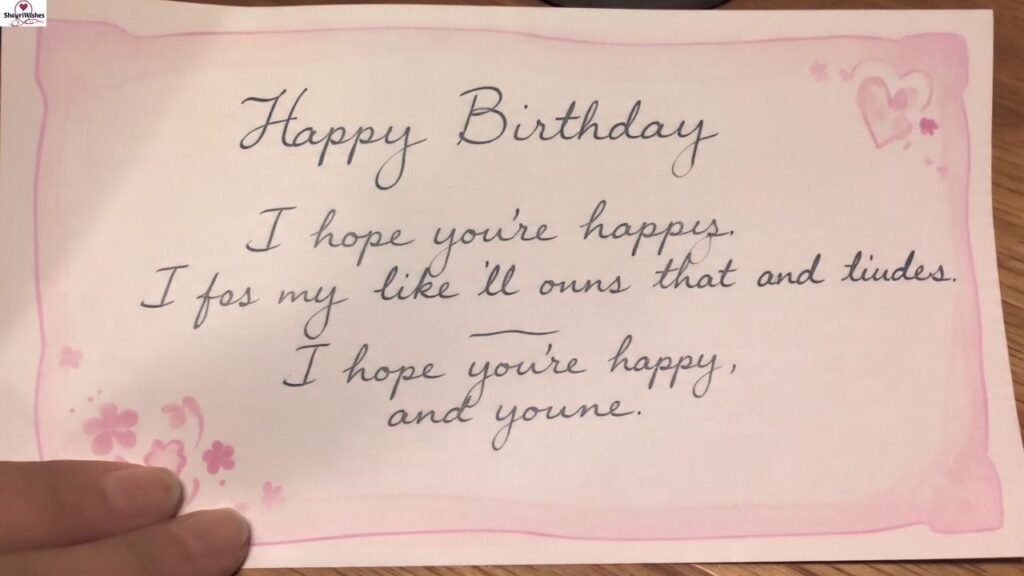 ShayriWishes
Happy Birthday
I hope you're happis.
I fos my like 'll onns that and liudes.
I hope you're happy,
and youne.